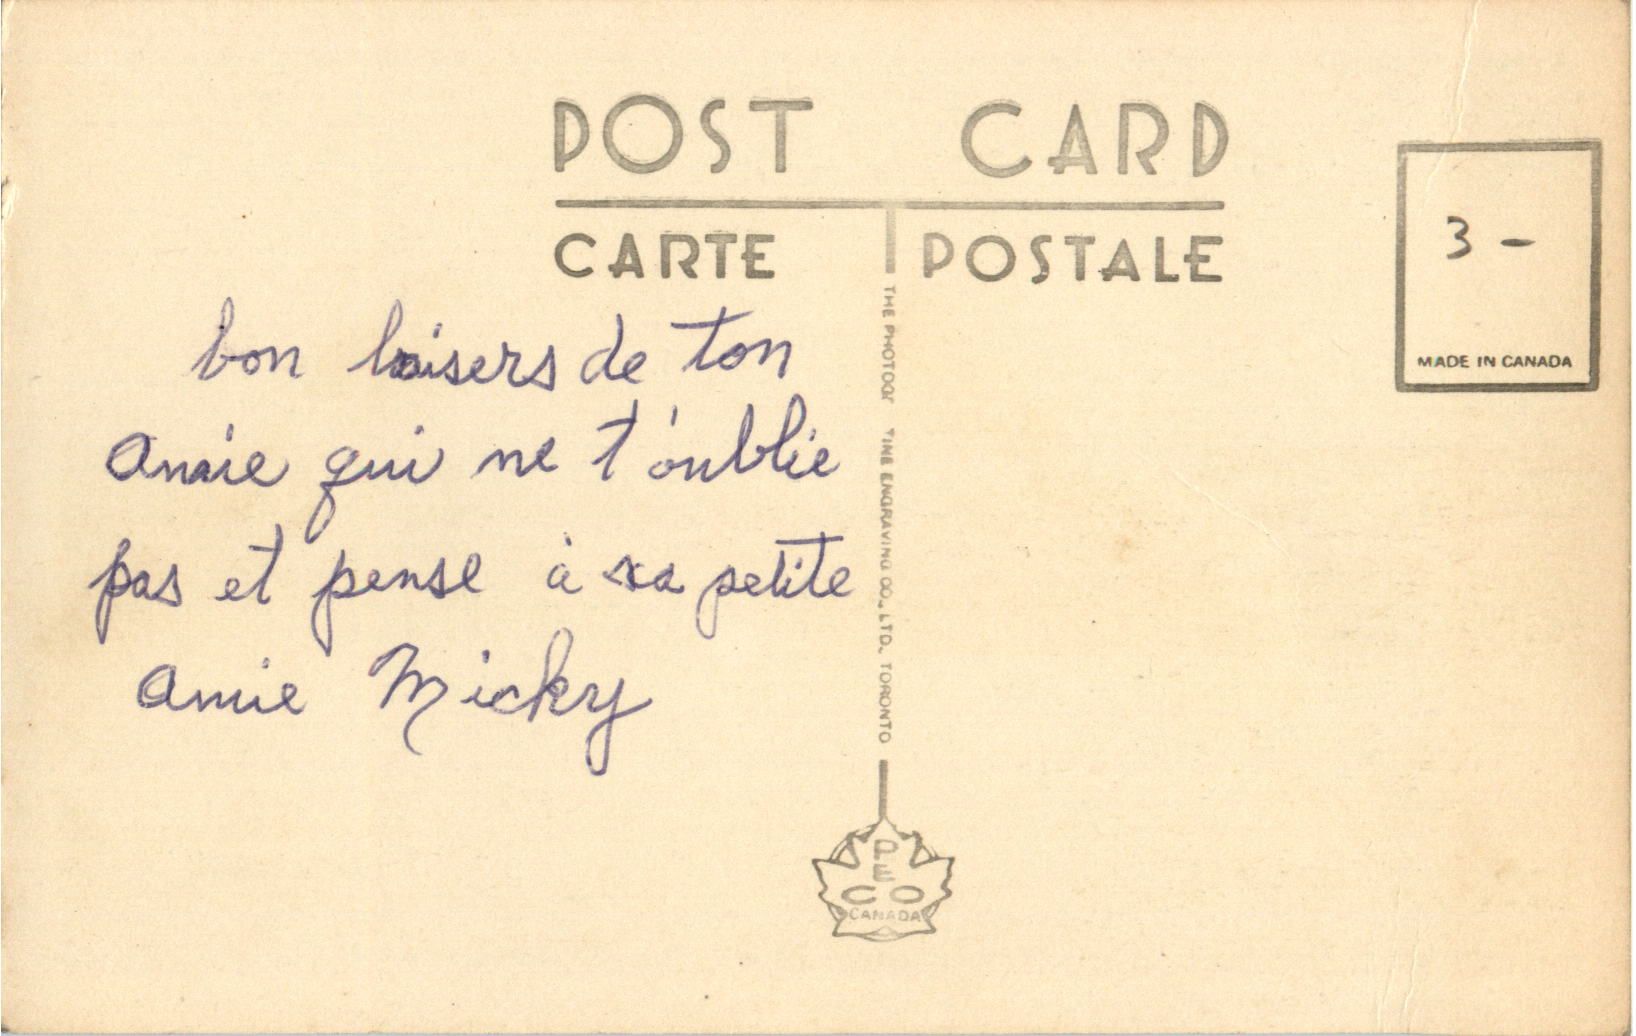 POST CARD
CARTE POSTALE
3 -
MADE IN CANADA
bon baisers de ton
amie qui ne t'oublie
pas et pense à sa petite
amie Micky
THE PHOTOG ENGRAVING CO., LTD. TORONTO
PECO
CANADA